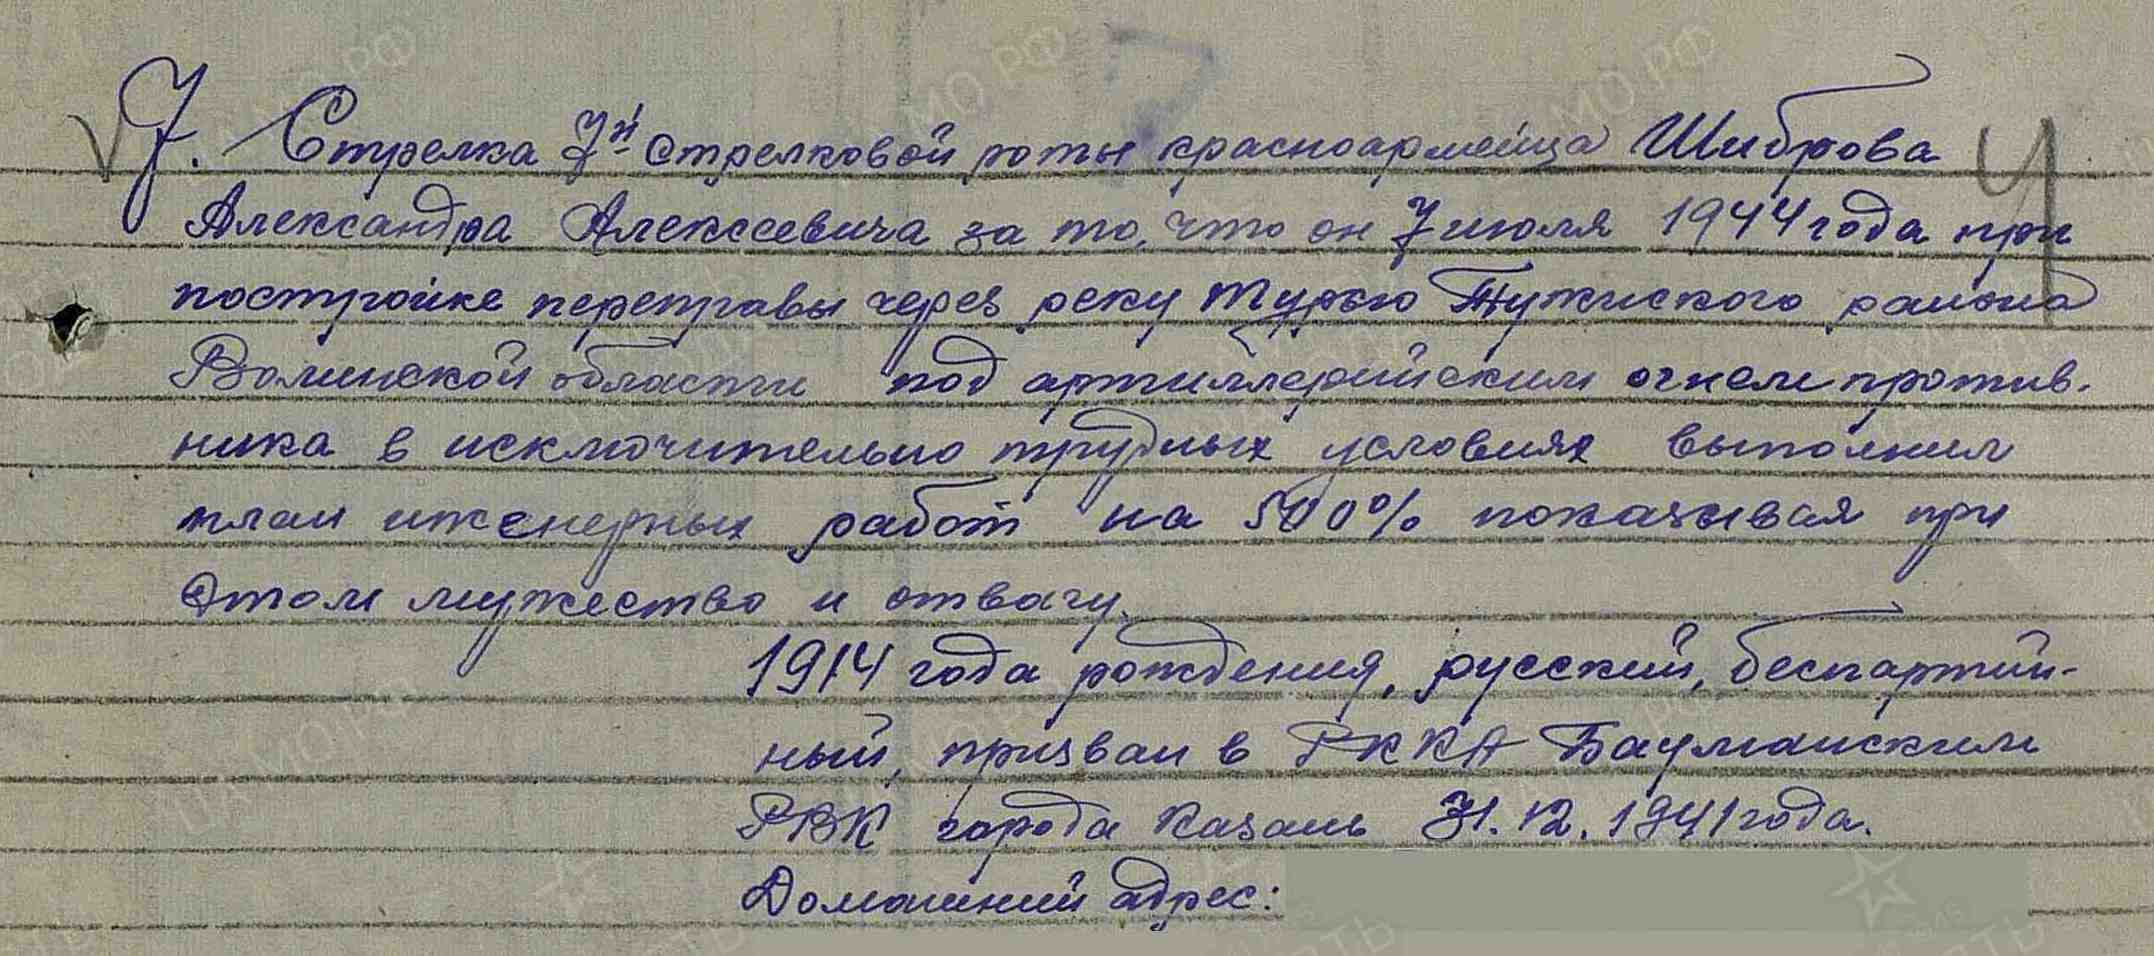 7. Стрелка 7й стрелковой роты красноармейца Шиброва
Александра Алексеевича за то, что он 7 июля 1944 года при
постройке переправы через реку Турью Тужиского района
Волынской области под артиллерийским огнем против-
ника в исключительно трудных условиях выполнил
план инженерных работ на 500% показывая при
этом мужество и отвагу.
1914 года рождения, русский, беспартий-
ный, призван в РККА Бауманским
РВК города Казань 31.12.1941 года.
Домашний адрес: